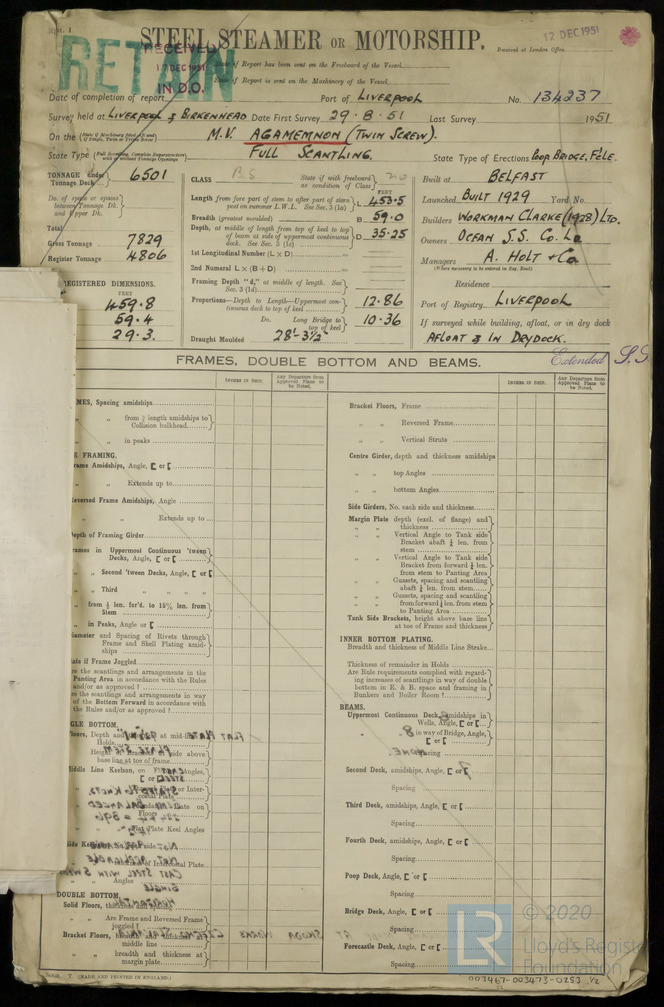 Rpt. 1
STEEL STEAMER OR MOTORSHIP.
12 DEC 1951
RETAIN
RECEIVED
17 DEC 1951
IN D.O.
Received at London Office
State if Report has been sent on the Freeboard of the Vessel
State if Report is sent on the Machinery of the Vessel
Date of completion of report
Port of LIVERPOOL
No. 134237
Survey held at LIVERPOOL & BIRKENHEAD Date First Survey 29.8.51 Last Survey 1951
On the M.V. AGAMEMNON (TWIN SCREW).
State Type FULL SCANTLING.
State Type of Erections POOP BRIDGE, F'CLE.
TONNAGE under Tonnage Deck 6501
Do. of space or spaces between Tonnage Dk. and Upper Dk.
Total
Gross Tonnage 7829
Register Tonnage 4806
REGISTERED DIMENSIONS.
FEET
459.8
59.4
29.3.
CLASS BS State if with freeboard as condition of Class no
FEET
Length from fore part of stem to after part of stern post on summer L.W.L. See Sec. 3 (1a) L 453.5
Breadth (greatest moulded) B 59.0
Depth, at middle of length from top of keel to top of beam at side of uppermost continuous deck. See Sec. 3 (1c) D 35.25
1st Longitudinal Number (L × D)
2nd Numeral L × (B + D)
Framing Depth "d," at middle of length. See Sec. 3 (1d)
Proportions—Depth to Length—Uppermost continuous deck to top of keel 12.86
Do. Long Bridge to top of keel 10.36
Draught Moulded 28'-3½"
Built at BELFAST
Launched BUILT 1929 Yard No.
Builders WORKMAN CLARKE (1928) LTD.
Owners OCEAN S.S. Co. Ld
Managers A. HOLT & Co
(Where necessary to be entered in Reg. Book)
Residence
Port of Registry LIVERPOOL
If surveyed while building, afloat, or in dry dock
AFLOAT & IN DRYDOCK.
FRAMES, DOUBLE BOTTOM AND BEAMS.
Extended S.S.
INCHES IN SHIP.
Any Departure from Approved Plans to be Noted.
INCHES IN SHIP.
Any Departure from Approved Plans to be Noted.
MES, Spacing amidships
" " from ⅗ length amidships to Collision bulkhead
" " in peaks
E FRAMING.
rame Amidships, Angle, [ or [
" " Extends up to
eversed Frame Amidships, Angle
" " Extends up to
epth of Framing Girder
rames in Uppermost Continuous 'tween Decks, Angle, [ or [
" " Second 'tween Decks, Angle, [ or [
" " Third " " " "
" " from ⅕ len. for'd. to 15% len. from Stem
" " in Peaks, Angle or [
iameter and Spacing of Rivets through Frame and Shell Plating amidships
ate if Frame Joggled
re the scantlings and arrangements in the Panting Area in accordance with the Rules and/or as approved ?
re the scantlings and arrangements in way of the Bottom Forward in accordance with the Rules and/or as approved ?
GLE BOTTOM.
DOUBLE BOTTOM.
Solid Floors,
" " Are Frame and Reversed Frame joggled ?
Bracket Floors,
middle line
" " breadth and thickness at margin plate
Bracket Floors, Frame
" " Reversed Frame
" " Vertical Struts
Centre Girder, depth and thickness amidships
" " top Angles
" " bottom Angles
Side Girders, No. each side and thickness
Margin Plate depth (excl. of flange) and thickness
" " Vertical Angle to Tank side Bracket abaft ¼ len. from stem
" " Vertical Angle to Tank side Bracket from forward ¼ len. from stem to Panting Area
" " Gussets, spacing and scantling abaft ¼ len. from stem
" " Gussets, spacing and scantling from forward ¼ len. from stem to Panting Area
Tank Side Brackets, height above base line at toe of Frame and thickness
INNER BOTTOM PLATING.
Breadth and thickness of Middle Line Strake
Thickness of remainder in Holds
Are Rule requirements complied with regarding increases of scantlings in way of double bottom in E. & B. space and framing in Bunkers and Boiler Room ?
BEAMS.
Uppermost Continuous Deck, amidships in Wells, Angle, [ or [
" " in way of Bridge, Angle, [ or [
Spacing
Second Deck, amidships, Angle, [ or [
Spacing
Third Deck, amidships, Angle, [ or [
Spacing
Fourth Deck, amidships, Angle, [ or [
Spacing
Poop Deck, Angle, [ or [
Spacing
Bridge Deck, Angle, [ or [
Spacing
Forecastle Deck, Angle, [ or [
Spacing
(MADE AND PRINTED IN ENGLAND.)
LR
© 2020
Lloyd's Register
Foundation
003467-003473-0253 1/2